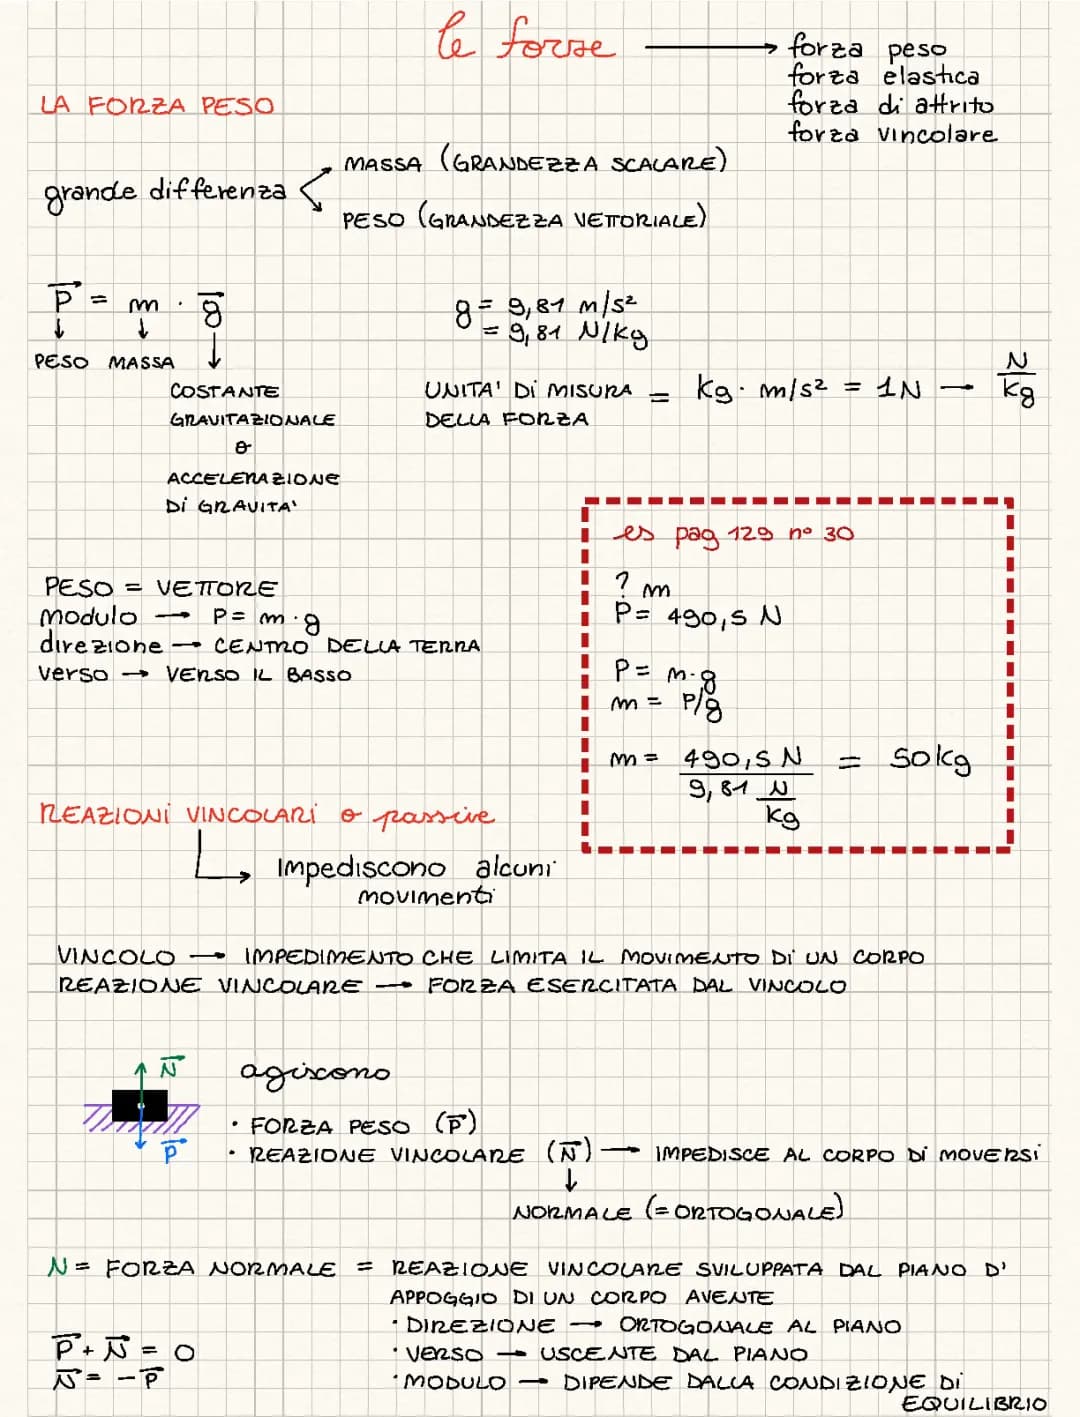 le forze → forza peso
forza elastica
forza di attrito
forza vincolare
LA FORZA PESO
grande differenza
MASSA (GRANDEZZA SCALARE)
PESO (GRANDEZZA VETTORIALE)
P⃗ = m · g⃗
PESO MASSA
COSTANTE
GRAVITAZIONALE
o
ACCELERAZIONE
Di GRAVITA'
g = 9,81 m/s²
= 9,81 N/kg
UNITA' Di MISURA = kg · m/s² = 1N — N/kg
DELLA FORZA
es pag 129 n° 30
? m
P = 490,5 N
P = m·g
m = P/g
m = 490,5 N / 9,81 N/kg = 50kg
PESO = VETTORE
modulo → P = m·g
direzione → CENTRO DELLA TERRA
verso → VERSO IL BASSO
REAZIONI VINCOLARI o passive
Impediscono alcuni
movimenti
VINCOLO → IMPEDIMENTO CHE LIMITA IL MOVIMENTO Di UN CORPO
REAZIONE VINCOLARE → FORZA ESERCITATA DAL VINCOLO
N⃗
P⃗
agiscono
· FORZA PESO (P⃗)
· REAZIONE VINCOLARE (N⃗) → IMPEDISCE AL CORPO Di MOVERSI
NORMALE (= ORTOGONALE)
N = FORZA NORMALE = REAZIONE VINCOLARE SVILUPPATA DAL PIANO D'
APPOGGIO DI UN CORPO AVENTE
· DIREZIONE → ORTOGONALE AL PIANO
· VERSO → USCENTE DAL PIANO
· MODULO → DIPENDE DALLA CONDIZIONE Di
EQUILIBRIO
P⃗ + N⃗ = 0
N⃗ = -P⃗